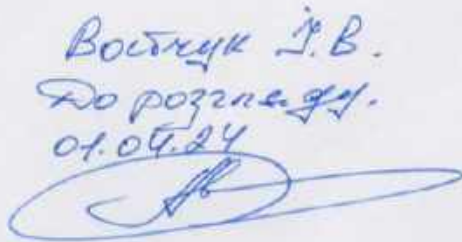 Войтчук І.В.
До розгляду.
01.04.24